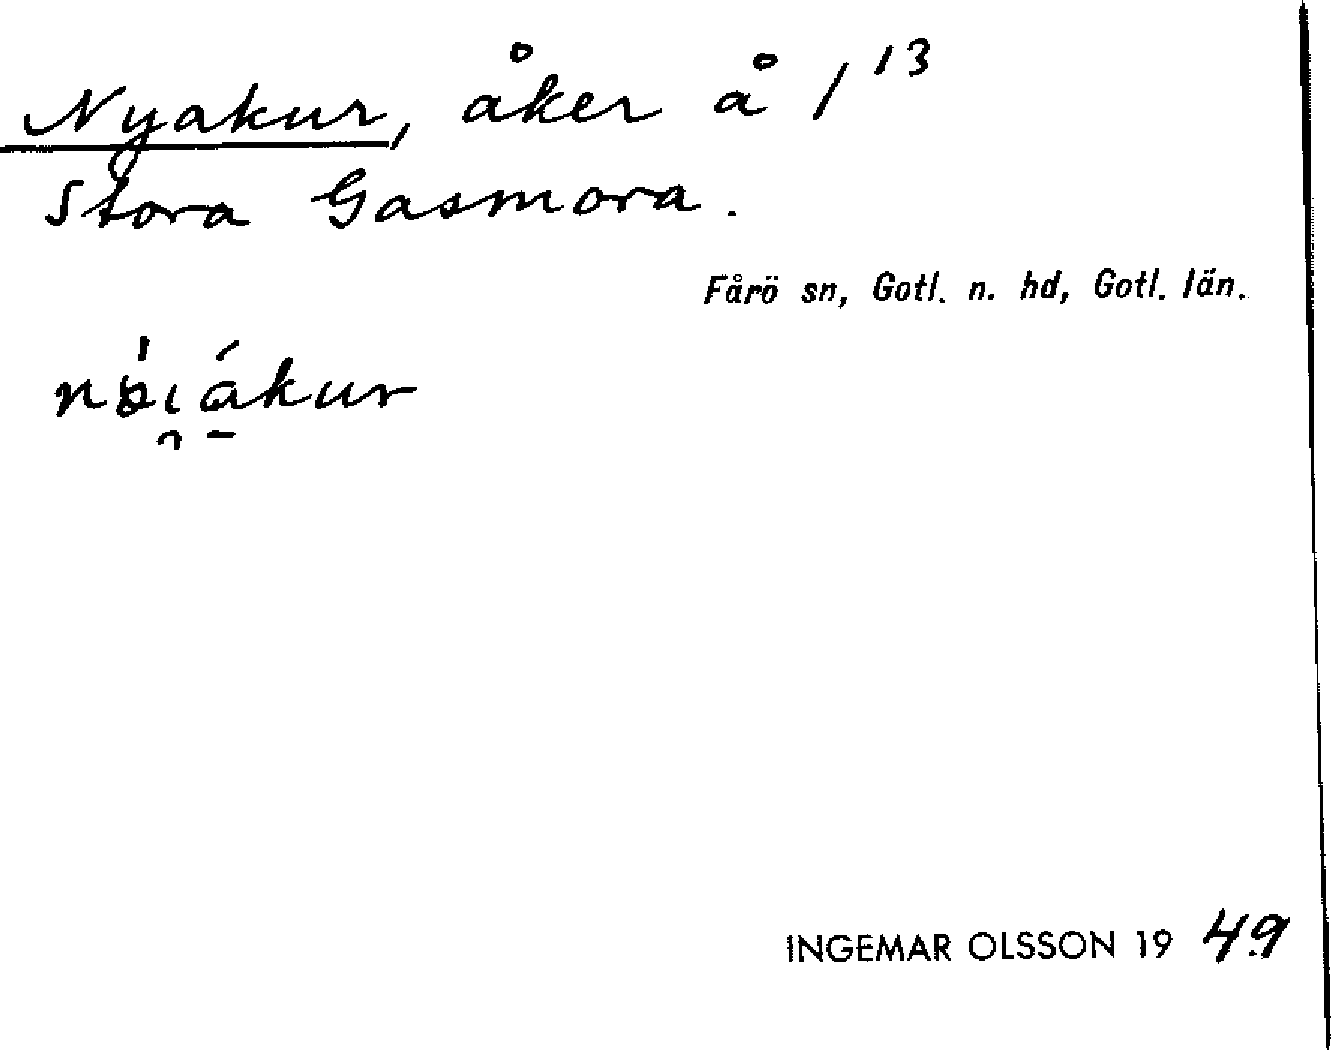 Nyakur, åker å 1¹³
Stora Gasmora.
Fårö sn, Gotl. n. hd, Gotl. län.
INGEMAR OLSSON 19 49